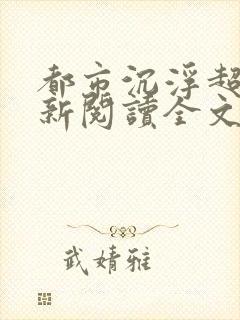 都市沉浮超
新閱讀全文
武婧雅